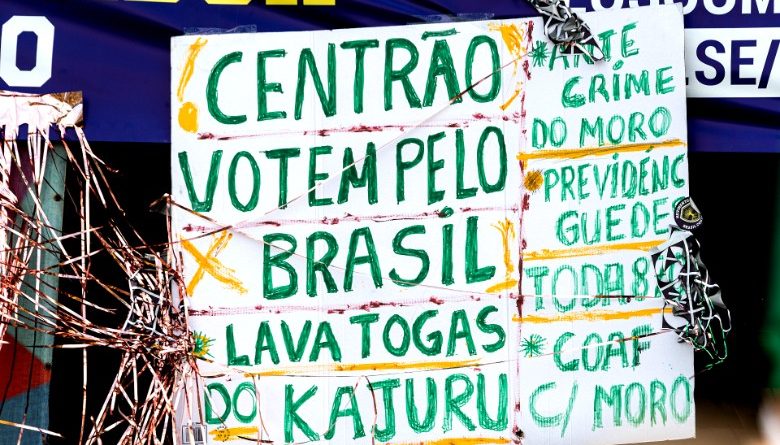 CENTRÃO
VOTEM PELO
BRASIL
LAVA TOGAS
DO KAJURU
ANTE
CRIME
DO MORO
PREVIDÊNC
GUEDE
TODA
COAF
C/ MORO
O
LSE/